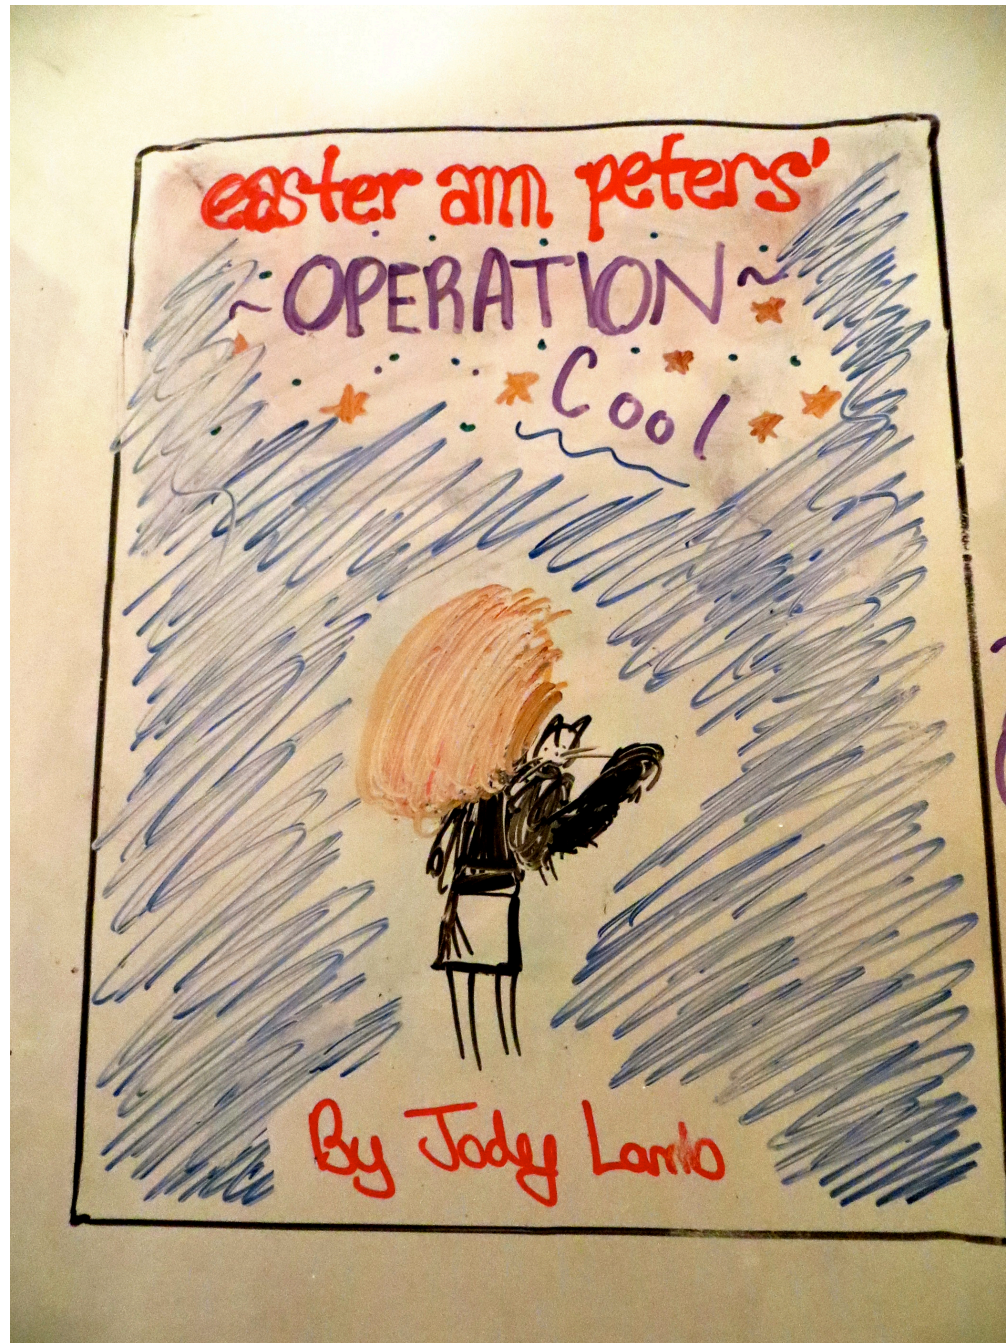 easter ann peters'
~OPERATION~
Cool
By Jody Lamb